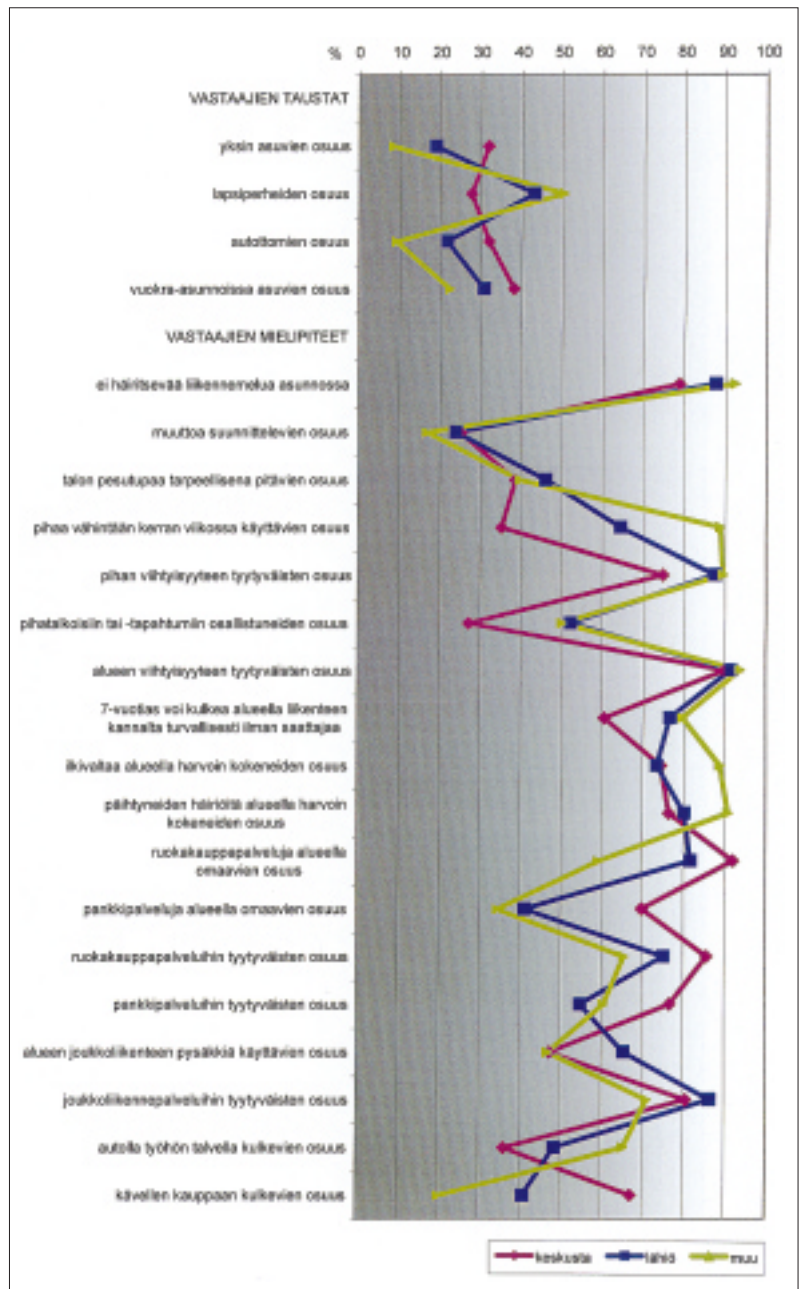 % 0 10 20 30 40 50 60 70 80 90 100
VASTAAJIEN TAUSTAT
yksin asuvien osuus
lapsiperheiden osuus
autottomien osuus
vuokra-asunnoissa asuvien osuus
VASTAAJIEN MIELIPITEET
ei häiritsevää liikennemelua asunnossa
muuttoa suunnittelevien osuus
talon pesutupaa tarpeellisena pitävien osuus
pihaa vähintään kerran viikossa käyttävien osuus
pihan viihtyisyyteen tyytyväisten osuus
pihatalkoisiin tai -tapahtumiin osallistuneiden osuus
alueen viihtyisyyteen tyytyväisten osuus
7-vuotias voi kulkea alueella liikenteen
kannalta turvallisesti ilman saattajaa
ilkivaltaa alueella harvoin kokeneiden osuus
päihtyneiden häiriöitä alueella harvoin
kokeneiden osuus
ruokakauppapalveluja alueella
omaavien osuus
pankkipalveluja alueella omaavien osuus
ruokakauppapalveluihin tyytyväisten osuus
pankkipalveluihin tyytyväisten osuus
alueen joukkoliikenteen pysäkkiä käyttävien osuus
joukkoliikennepalveluihin tyytyväisten osuus
autolla työhön talvella kulkevien osuus
kävellen kauppaan kulkevien osuus
keskusta lähiö muu